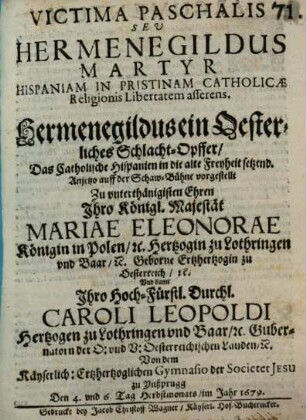 71.
VICTIMA PASCHALIS
SEV
HERMENEGILDUS
MARTYR
HISPANIAM IN PRISTINAM CATHOLICÆ
Religionis Libertatem asserens.
Hermenegildus ein Oester-
liches Schlacht-Opffer/
Das Catholische Hispanien in die alte Freyheit setzend.
Anjetzo auff der Schaw-Bühne vorgestellt
Zu unterthänigisten Ehren
Ihro Königl. Majestät
MARIÆ ELEONORAE
Königin in Polen/ ꝛc. Hertzogin zu Lothringen
vnd Baar/ ꝛc. Geborne Ertzhertzogin zu
Oesterreich/ ꝛc.
Vnd dann
Ihro Hoch-Fürstl. Durchl.
CAROLI LEOPOLDI
Hertzogen zu Lothringen vnd Baar/ ꝛc. Guber-
natorn der O: vnd V: Oesterreichischen Landen/ ꝛc.
Von dem
Käyserlich: Ertzhertzoglichen Gymnasio der Societet Jesu
zu Ynßprugg
Den 4. vnd 6 Tag Herbstmonats/ im Jahr 1679.
Gedruckt bey Jacob Christoff Wagner/ Käyserl. Hof-Buchtrucker.